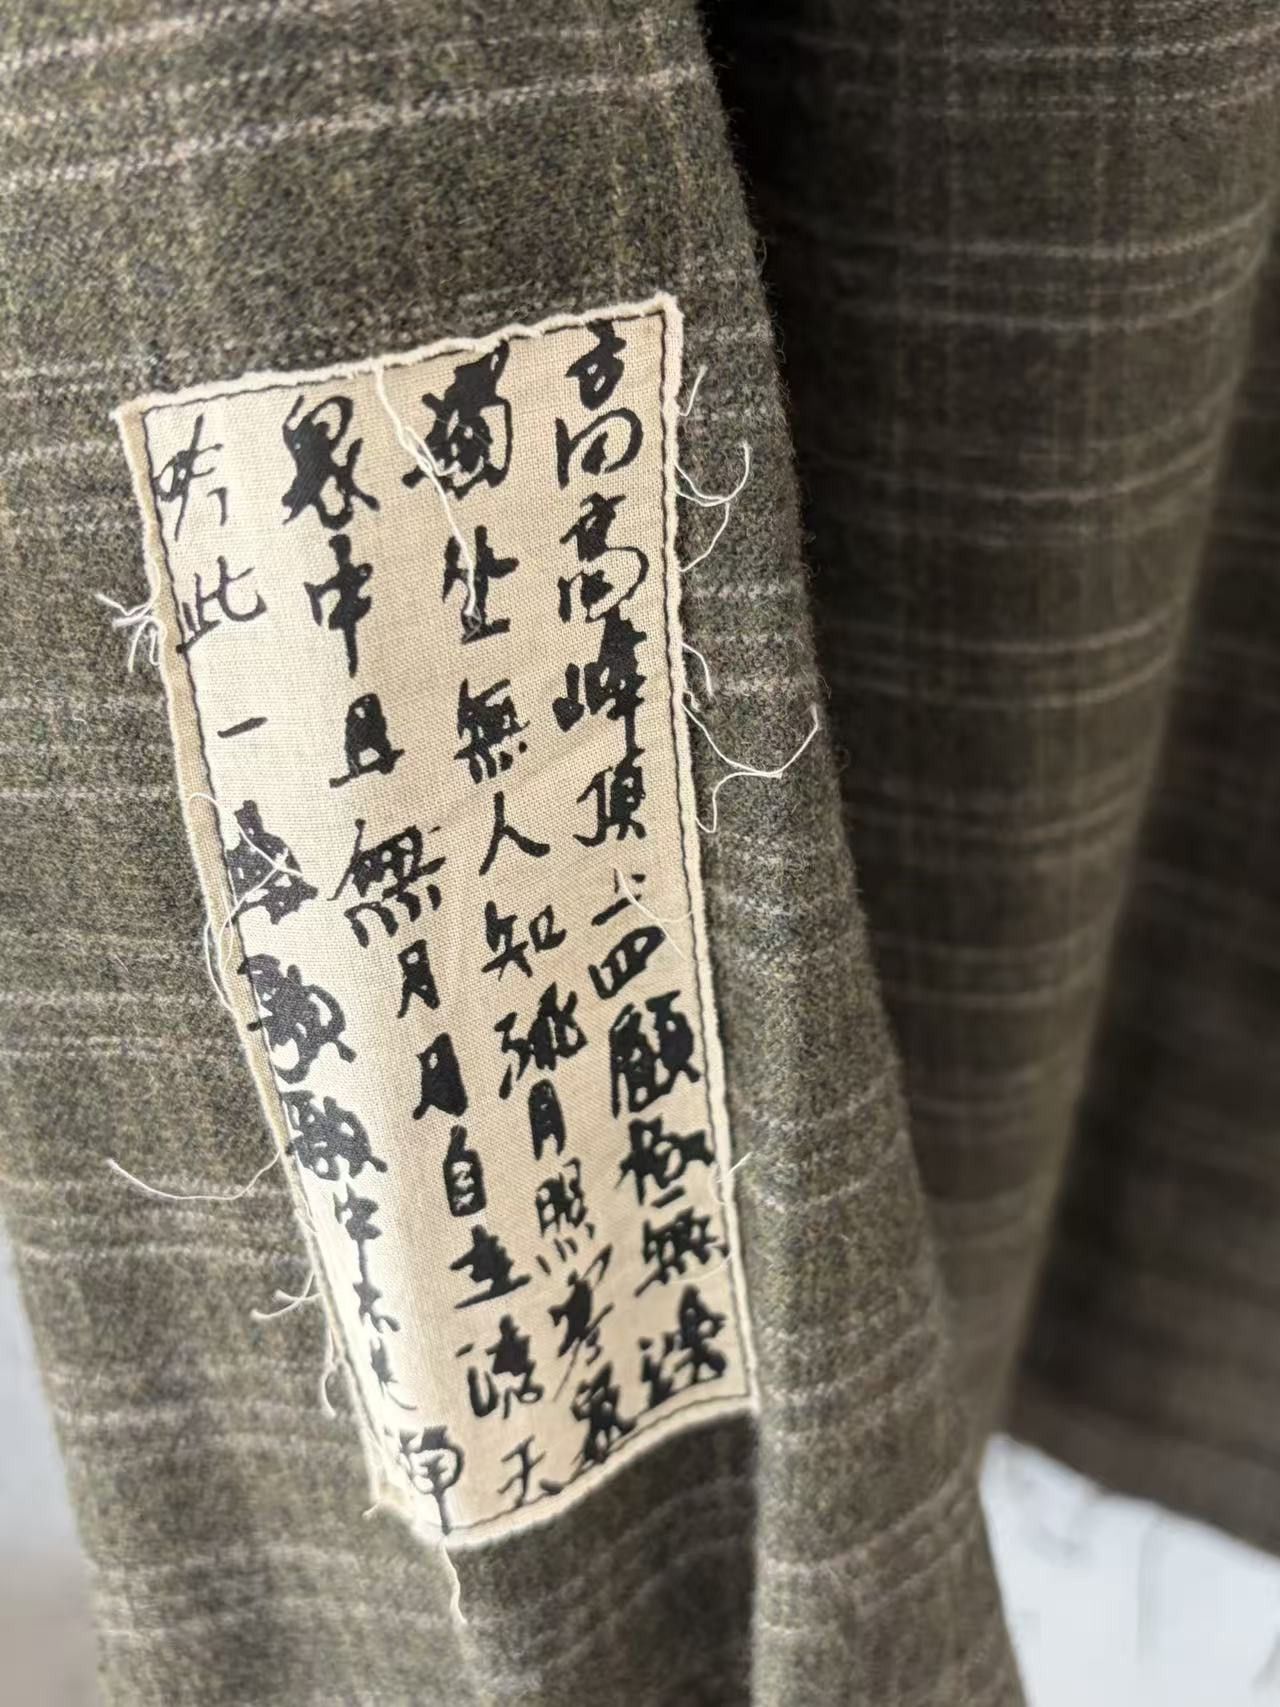 高高峰頂上四顧極無邊
獨坐無人知孤月照寒泉
泉中且無月月自在清天
吟此一曲歌歌中不是禪